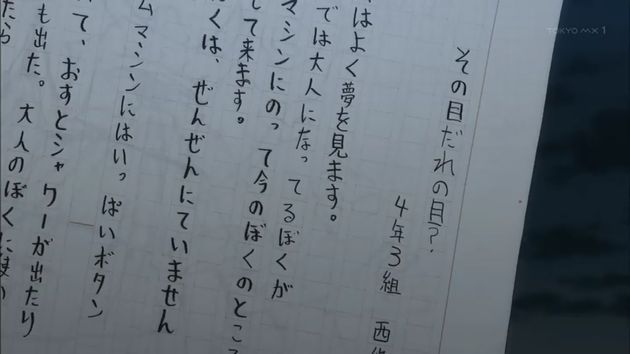 TOKYO MX1
その目だれの目?
4年3組 西
はよく夢を見ます。
では大人になってるぼくが
マシンにのって今のぼくのところ
して来ます。
くは、ぜんぜんにていません
ムマシンにはいっぱいボタン
て、おすとシャワーが出たり
も出た。大人のぼくに
たら